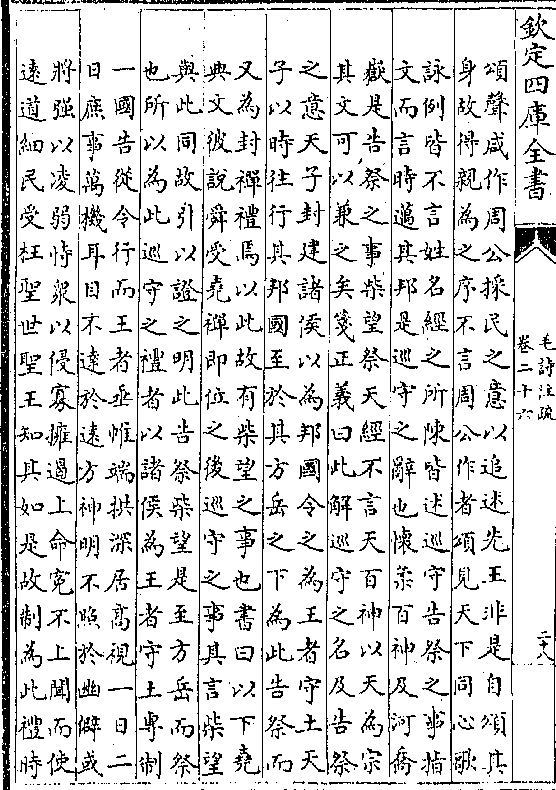 欽定四庫全書
毛詩注疏
卷二十六
二十八
頌聲咸作周公採民之意以追述先王非是自頌其
身故得親為之序不言周公作者頌見天下同心歌
詠例皆不言姓名經之所陳皆述巡守告祭之事指
文而言時邁其邦是巡守之辭也懷柔百神及河喬
嶽是告祭之事柴望祭天經不言天百神以天為宗
其文可以兼之矣箋正義曰此解巡守之名及告祭
之意天子封建諸侯以為邦國令之為王者守土天
子以時往行其邦國至於其方岳之下為此告祭而
又為封禪禮焉以此故有柴望之事也書曰以下堯
典文彼說舜受堯禪即位之後巡守之事其言柴望
與此同故引以證之明此告祭柴望是至方岳而祭
也所以為此巡守之禮者以諸侯為王者守土專制
一國告從令行而王者垂帷端拱深居高視一日二
日庶事萬機耳目不達於遠方神明不照於幽僻或
將强以凌弱恃衆以侵寡擁遏上命寃不上聞而使
遠道細民受枉聖世聖王知其如是故制為此禮時